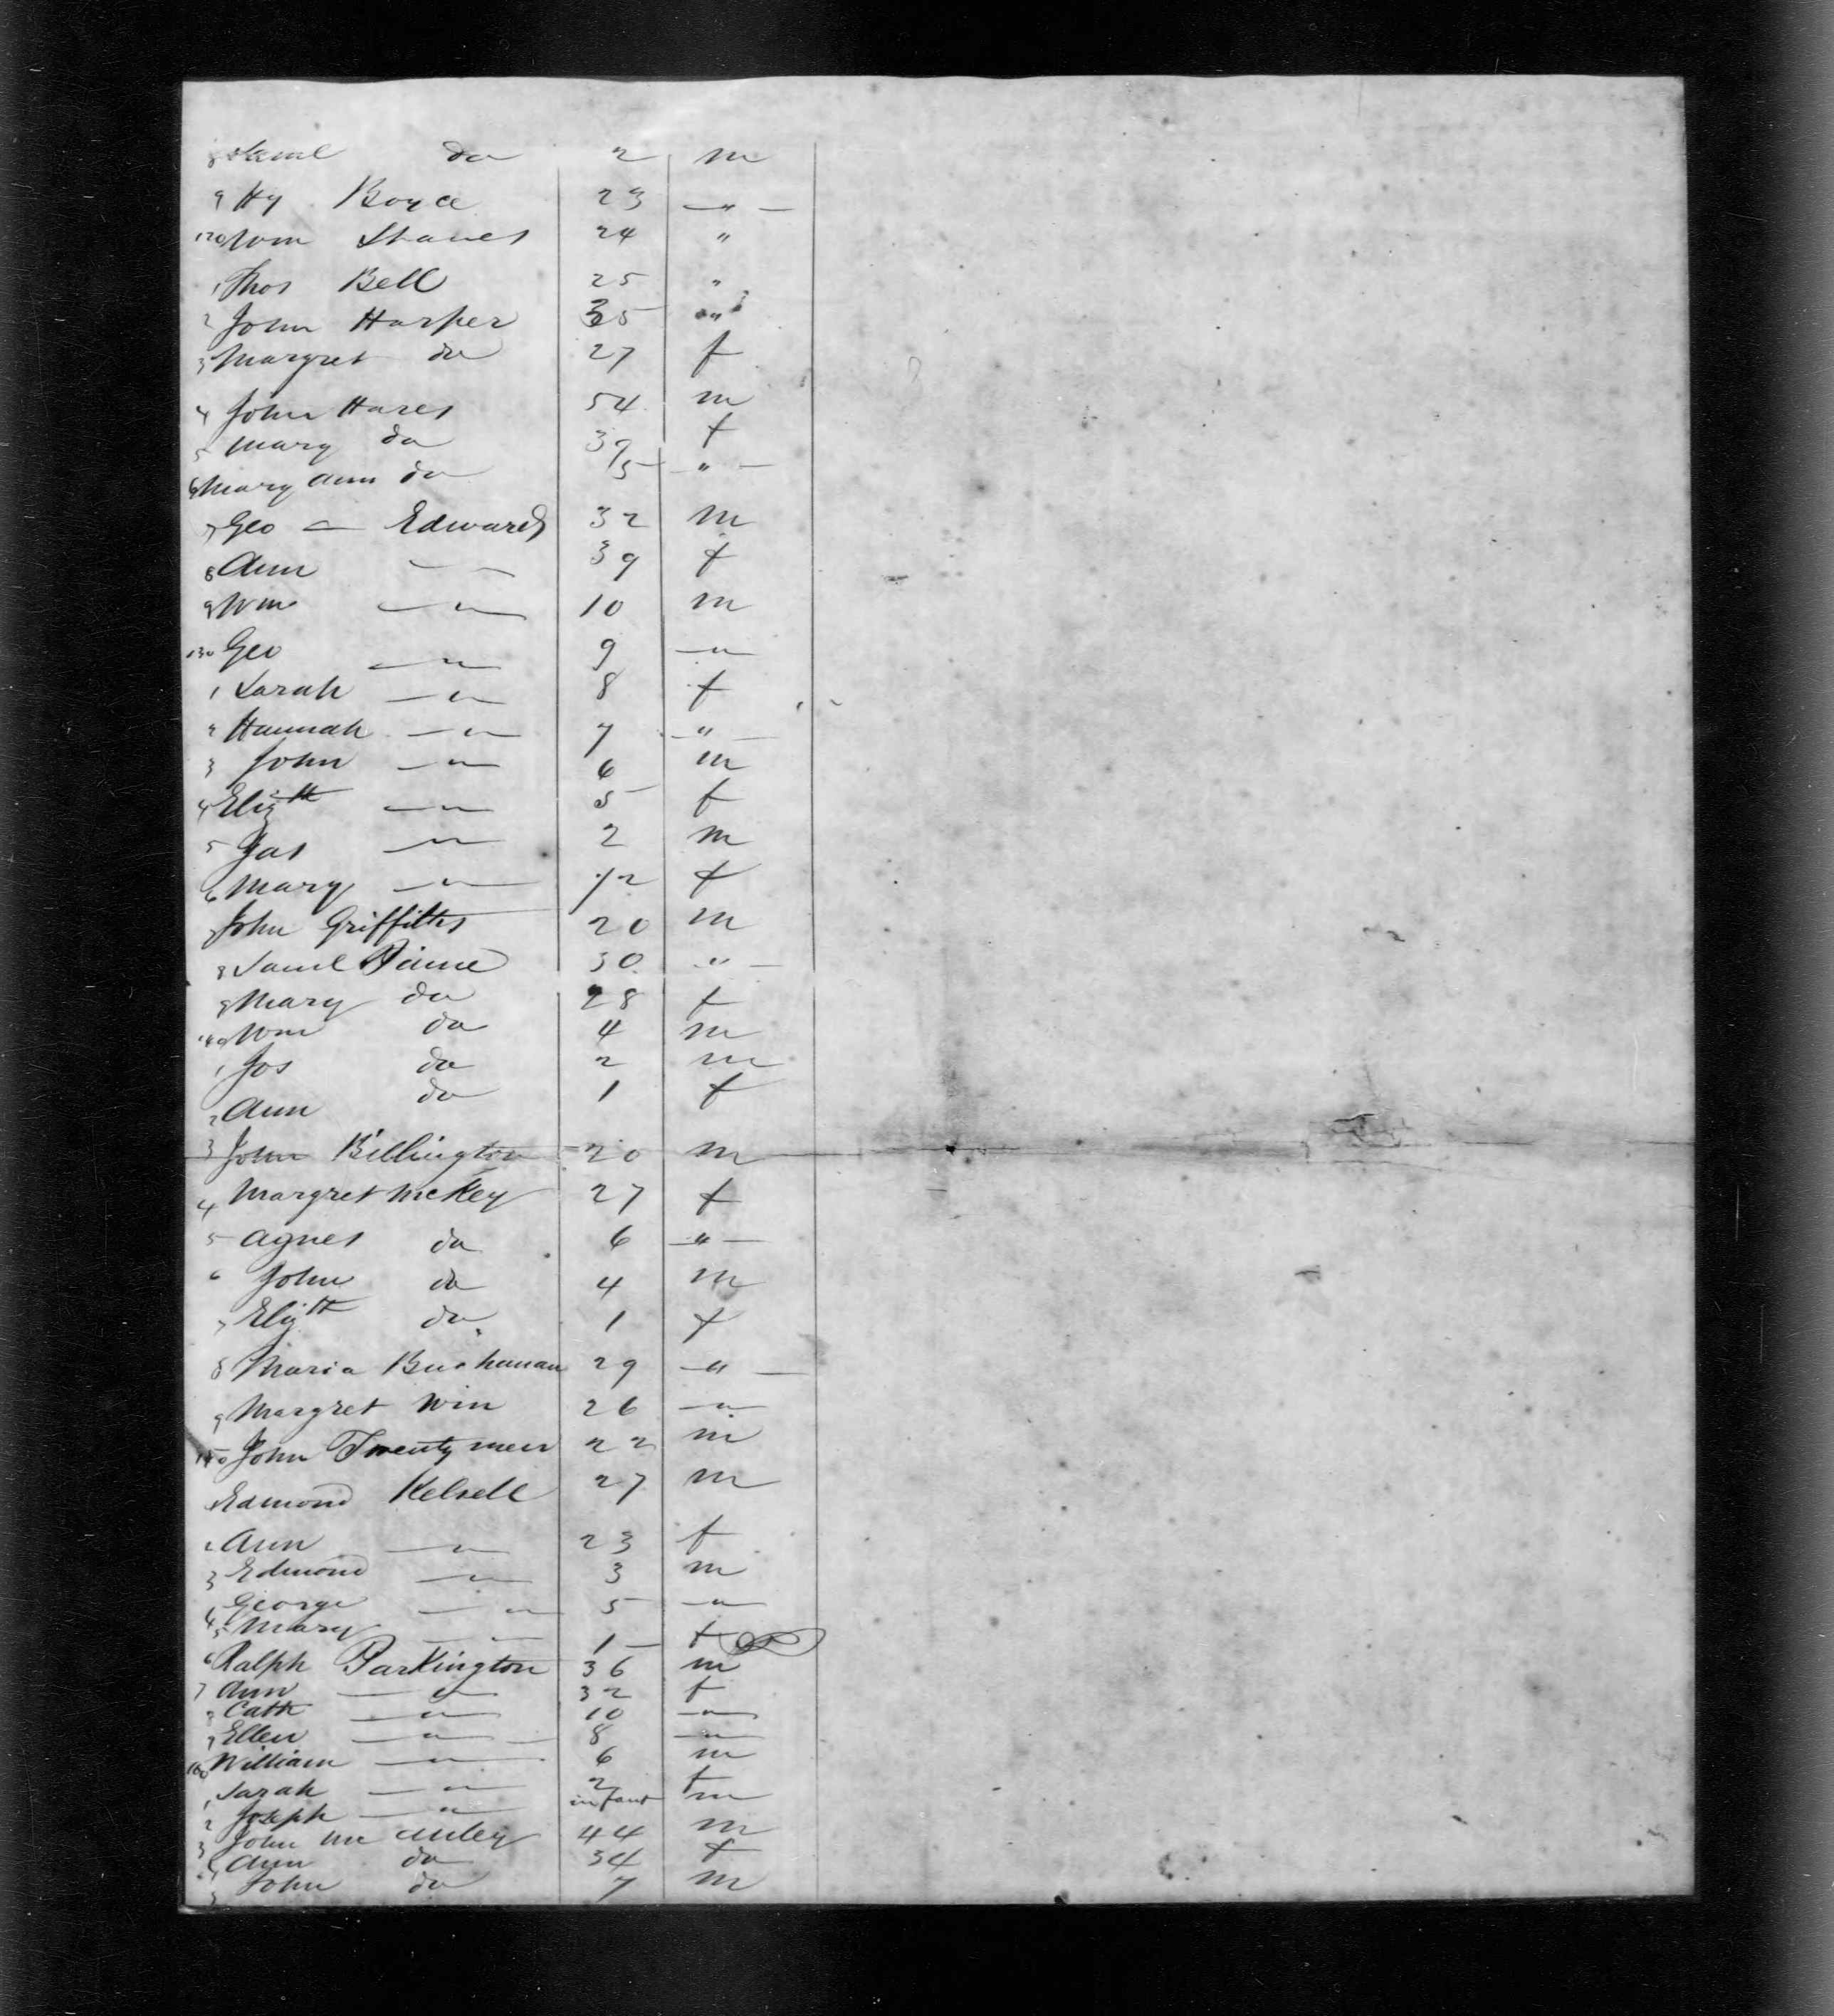 8 Saml do 2 m
9 Hy Boyce 23 — " —
120 Wm Shanes 24 "
1 Thos Bell 25 "
2 John Harper 35 "
3 Margret do 27 f
4 John Hares 54 m
5 Mary do 37 f
6 Mary Ann do 15 — " —
7 Geo — Edwards 32 m
8 Ann — — 39 f
9 Wm — " — 10 m
130 Geo — " — 9 — "
1 Sarah — " — 8 f
2 Hannah — " — 7 — " —
3 John — " — 6 m
4 Elizth — " — 5 f
5 Jas — " — 2 m
6 Mary — " — 1/2 f
7 John Griffiths 20 m
8 Saml 30 " —
9 Mary do 28 f
140 Wm do 4 m
1 Jos do 2 m
2 Ann do 1 f
3 John Billington 20 m
4 Margret McKey 27 f
5 Agnes do 6 — " —
6 John do 4 m
7 Elizth do 1 f
8 Maria Buchanan 29 — " —
9 Margret Win 26 — " —
150 John Twentymen 22 m
1 Edmond Kelsell 27 m
2 Ann — " — 23 f
3 Edmond — " — 3 m
4 George — " — 5 — " —
5 Mary — — 1 — f
6 Ralph Parkington 36 m
7 Ann — " — 32 f
8 Cath — " — 10 — " —
9 Ellen — " — 8 — " —
160 William — " — 6 m
1 Sarah — " — 2 f
2 Joseph — " — infant m
3 John Mc Auley 44 m
4 Ann do 34 f
5 John do 7 m